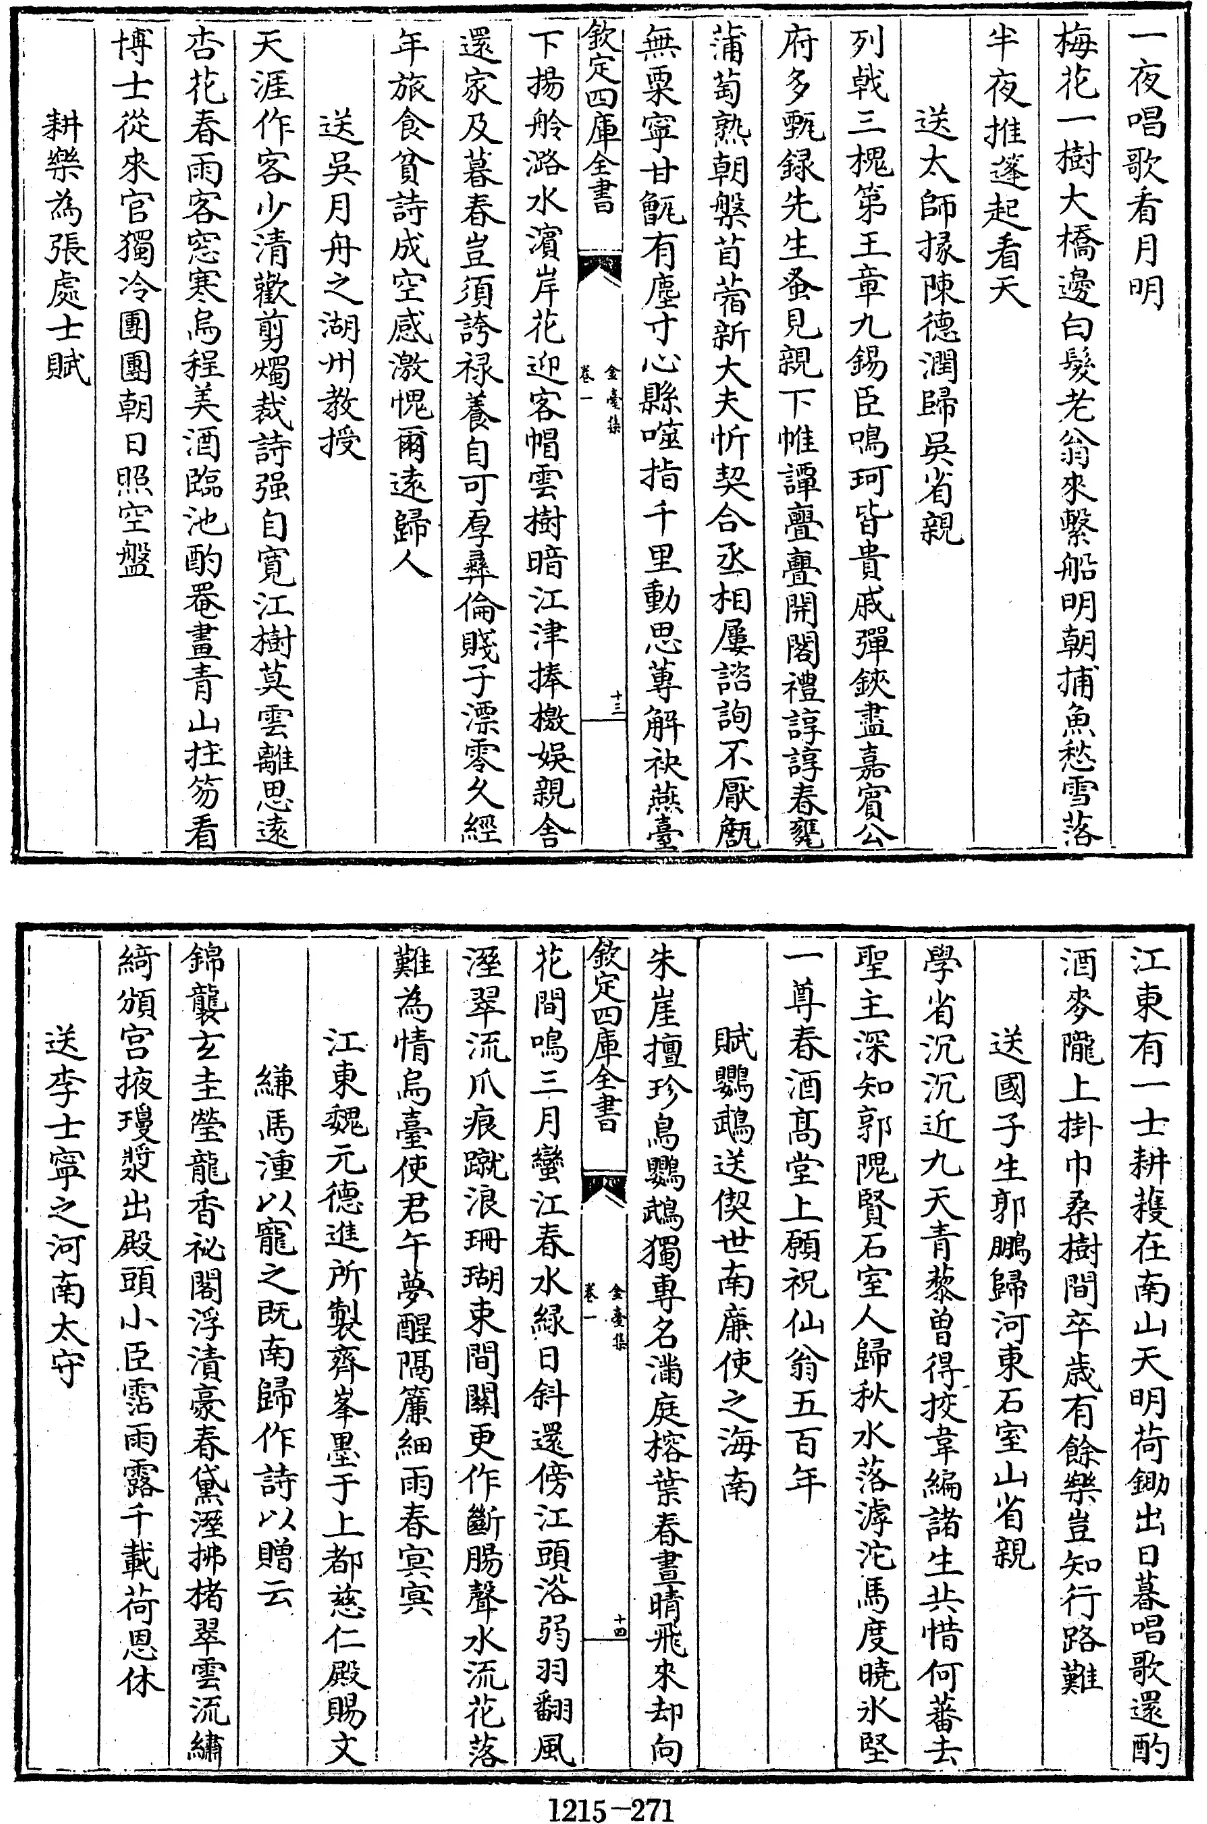 一夜唱歌看月明
梅花一樹大橋邊白髮老翁來繫船明朝捕魚愁雪落
半夜推篷起看天
送太師掾陳德潤歸吳省親
列戟三槐第王章九錫臣鳴珂皆貴戚彈鋏盡嘉賓公
府多甄録先生蚤見親下帷譚亹亹開閣禮諄諄春甕
蒲萄熟朝槃苜蓿新大夫忻契合丞相屢諮詢不厭甔
無粟寧甘甑有塵寸心縣噬指千里動思蓴解袂燕臺
欽定四庫全書
金臺集
卷一
十三
下揚舲潞水濱岸花迎客帽雲樹暗江津捧檄娛親舍
還家及暮春豈須誇禄養自可厚彞倫賤子漂零久經
年旅食貧詩成空感激愧爾遠歸人
送吳月舟之湖州教授
天涯作客少清歡剪燭裁詩强自寛江樹莫雲離思遠
杏花春雨客窓寒烏程美酒臨池酌罨畫青山拄笏看
博士從來官獨冷團團朝日照空盤
耕樂為張處士賦
江東有一士耕穫在南山天明荷鋤出日暮唱歌還酌
酒麥隴上掛巾桑樹間卒歲有餘樂豈知行路難
送國子生郭鵬歸河東石室山省親
學省沉沉近九天青藜曽得挍韋編諸生共惜何蕃去
聖主深知郭隗賢石室人歸秋水落滹沱馬度曉氷堅
一尊春酒髙堂上願祝仙翁五百年
賦鸚鵡送偰世南亷使之海南
朱崖擅珍鳥鸚鵡獨專名滿庭榕葉春晝晴飛來却向
欽定四庫全書
金臺集
卷一
十四
花間鳴三月蠻江春水緑日斜還傍江頭浴弱羽翻風
溼翠流爪痕蹴浪珊瑚束間關更作斷腸聲水流花落
難為情烏臺使君午夢醒隔簾細雨春冥冥
江東魏元德進所製齊峯墨于上都慈仁殿賜文
縑馬湩以寵之既南歸作詩以贈云
錦襲玄圭瑩龍香祕閣浮漬豪春黛溼拂楮翠雲流繡
綺頒宫掖瓊漿出殿頭小臣霑雨露千載荷恩休
送李士寧之河南太守
1215-271